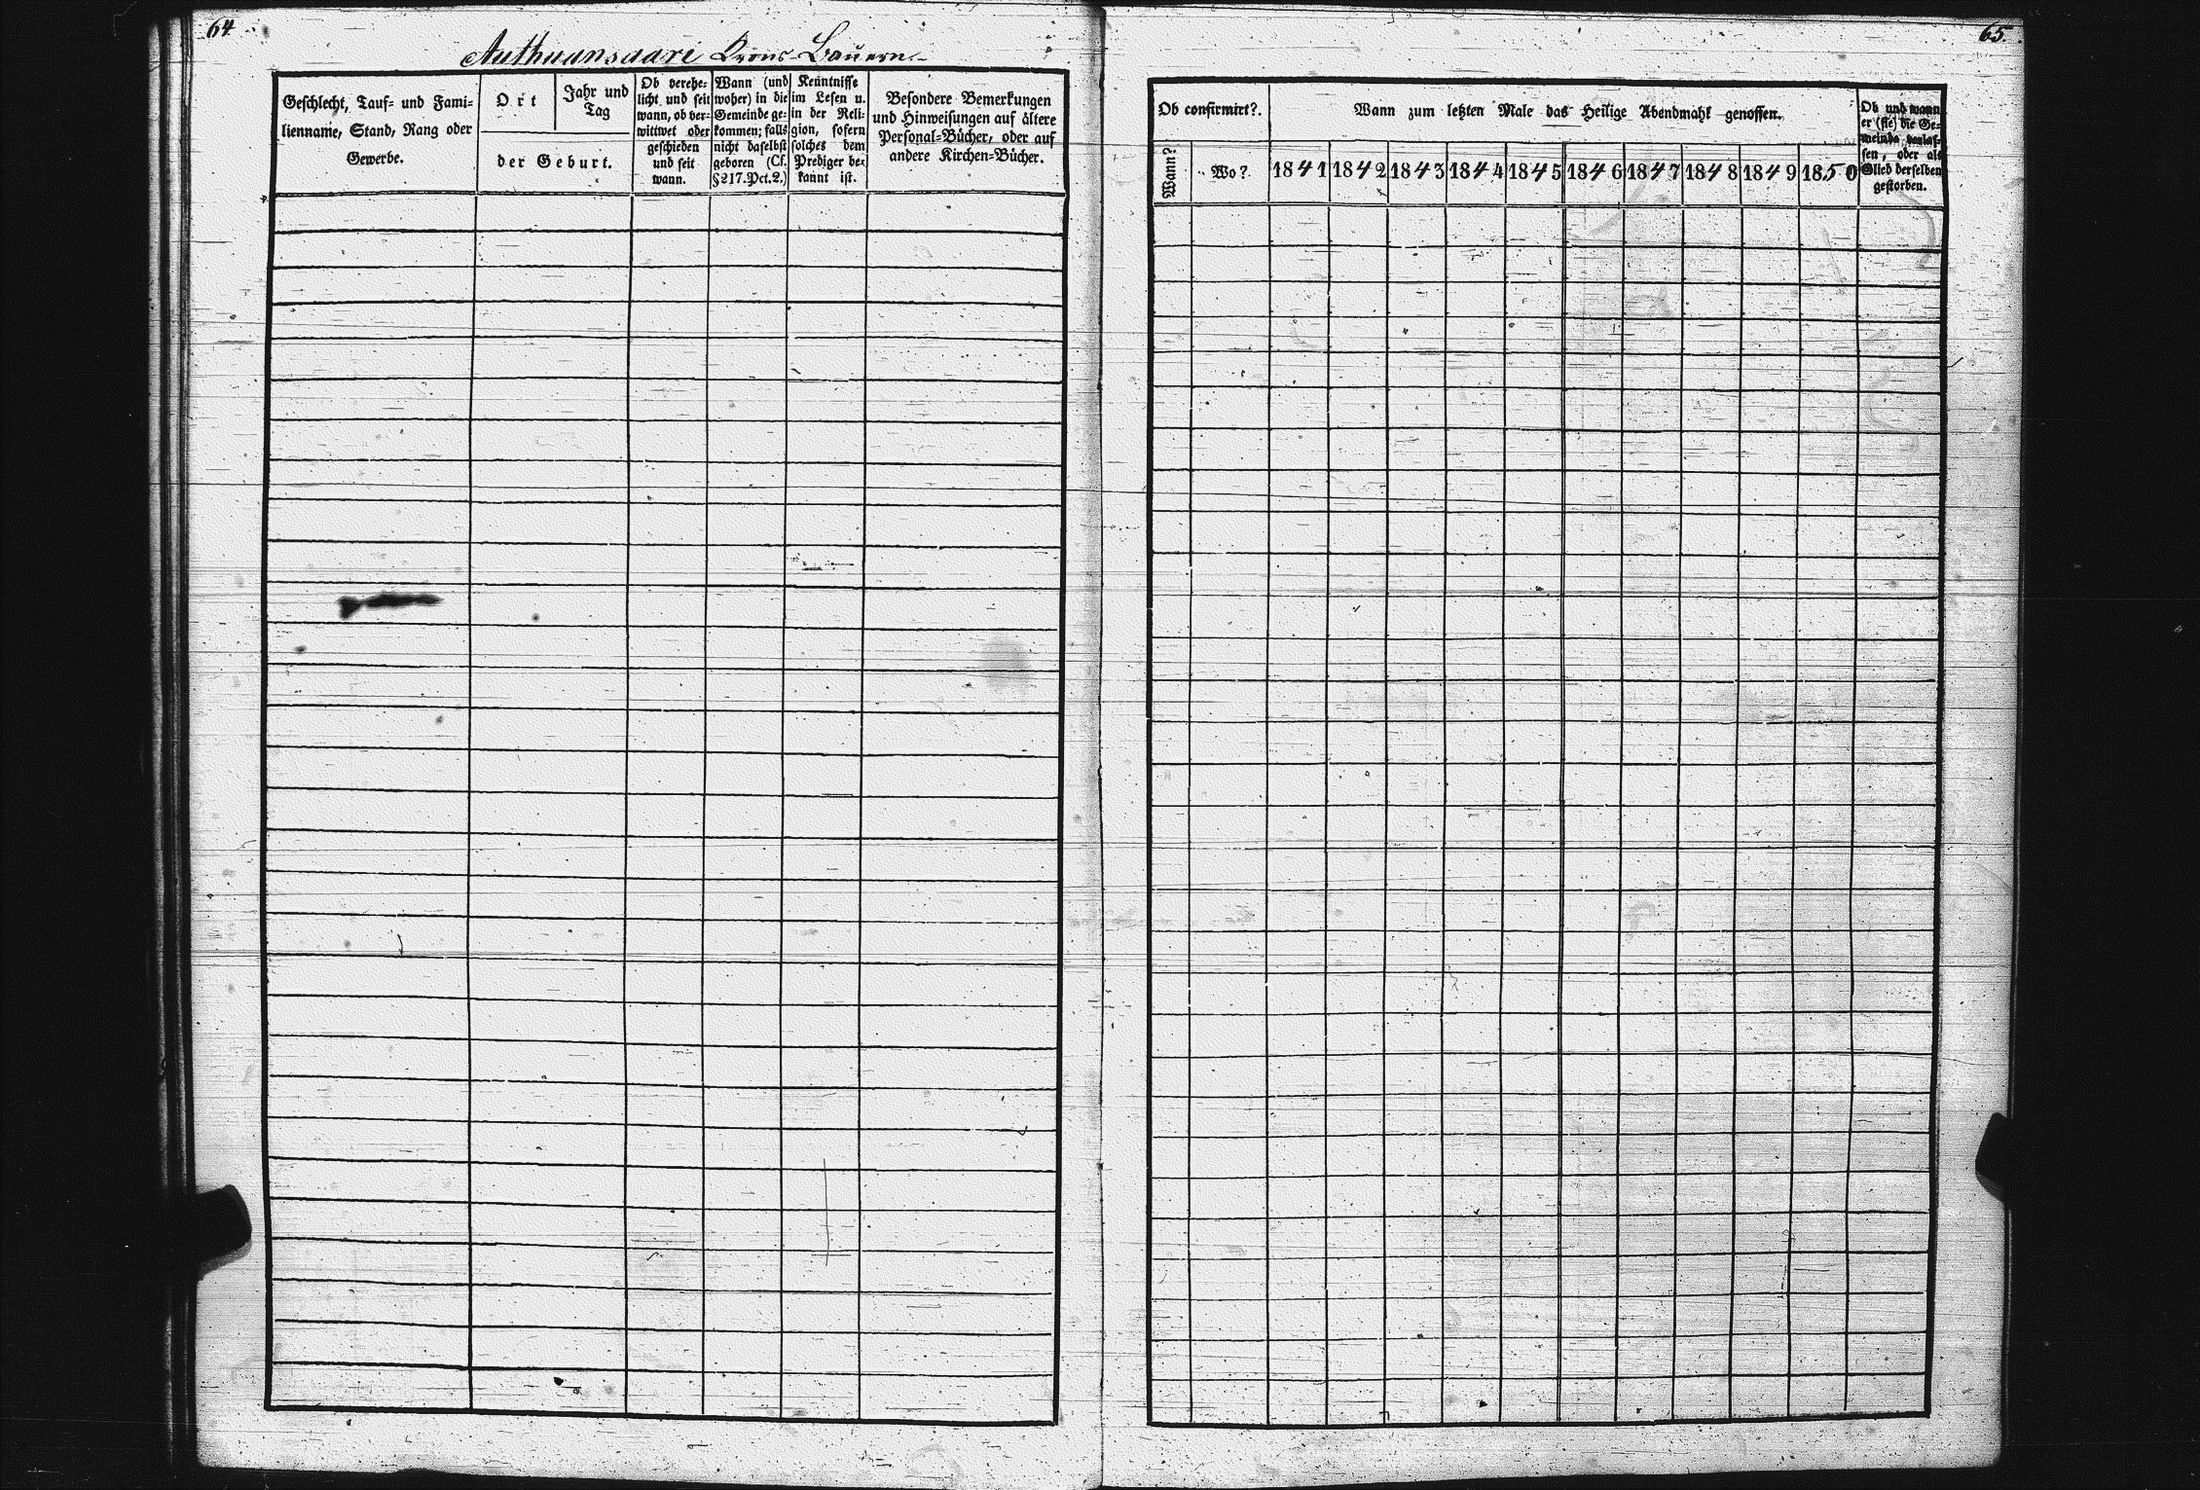 64
Authuansaari Krons-Bauern
Geschlecht, Tauf- und Fami-
lienname, Stand, Rang oder
Gewerbe.
Ort
Jahr und
Tag
der Geburt.
Ob verehe-
licht und seit
wann, ob ver-
wittwet oder
geschieden
und seit
wann.
Wann (und
woher) in die
Gemeinde ge-
kommen; falls
nicht daselbst
geboren (Cf.
§217.Pct.2.)
Kenntnisse
im Lesen u.
in der Reli-
gion, sofern
solches dem
Prediger be-
kannt ist.
Besondere Bemerkungen
und Hinweisungen auf ältere
Personal-Bücher, oder auf
andere Kirchen-Bücher.
65.
Ob confirmirt?
Wann?
Wo?
Wann zum letzten Male das Heilige Abendmahl genossen.
1841 1842 1843 1844 1845 1846 1847 1848 1849 1850
Ob und wann
er (sie) die Ge-
meinde verlas-
sen, oder als
Glied derselben
gestorben.